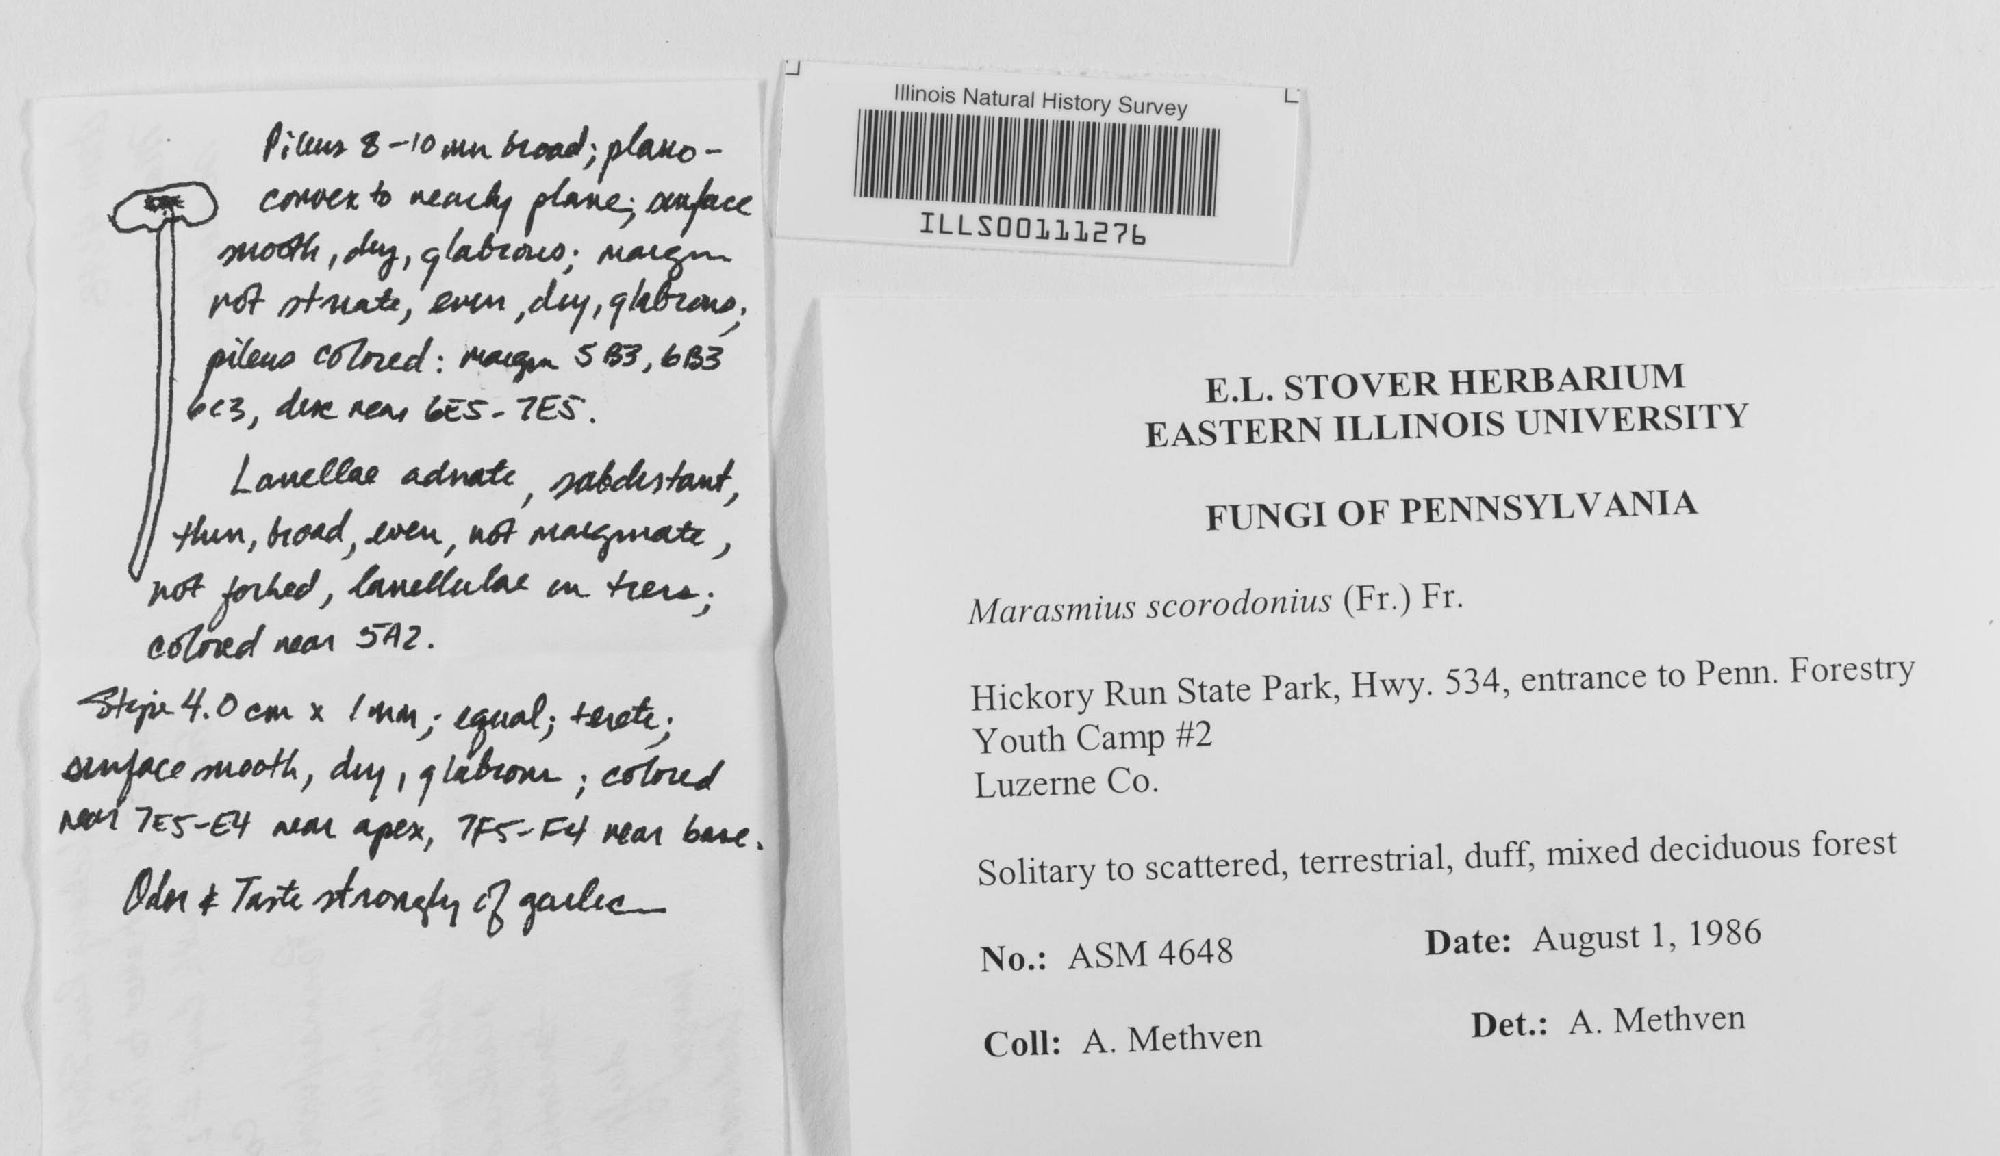 Pileus 8-10 mm broad; plano-
convex to nearly plane; surface
smooth, dry, glabrous; margin
not striate, even, dry, glabrous;
pileus colored: margin 5B3, 6B3
6C3, disc near 6E5-7E5.
Lamellae adnate, subdistant,
thin, broad, even, not marginate,
not forked, lamellulae in tiers;
colored near 5A2.
Stipe 4.0 cm x 1 mm; equal; terete;
surface smooth, dry, glabrous; colored
near 7E5-E4 near apex, 7F5-F4 near base.
Odor & Taste strongly of garlic
Illinois Natural History Survey
ILLS00111276
E.L. STOVER HERBARIUM
EASTERN ILLINOIS UNIVERSITY
FUNGI OF PENNSYLVANIA
Marasmius scorodonius (Fr.) Fr.
Hickory Run State Park, Hwy. 534, entrance to Penn. Forestry
Youth Camp #2
Luzerne Co.
Solitary to scattered, terrestrial, duff, mixed deciduous forest
No.: ASM 4648 Date: August 1, 1986
Coll: A. Methven Det.: A. Methven